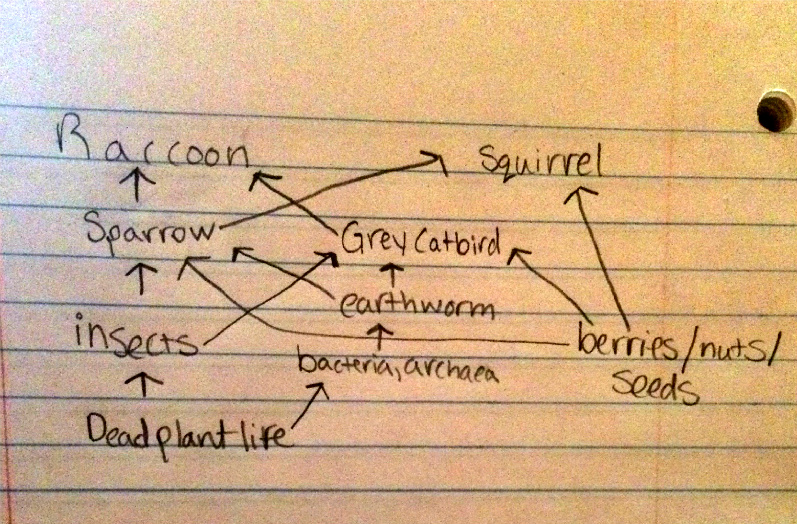 Raccoon
Squirrel
Sparrow
Grey Catbird
earthworm
insects
berries/nuts/
seeds
bacteria, archaea
Dead plant life